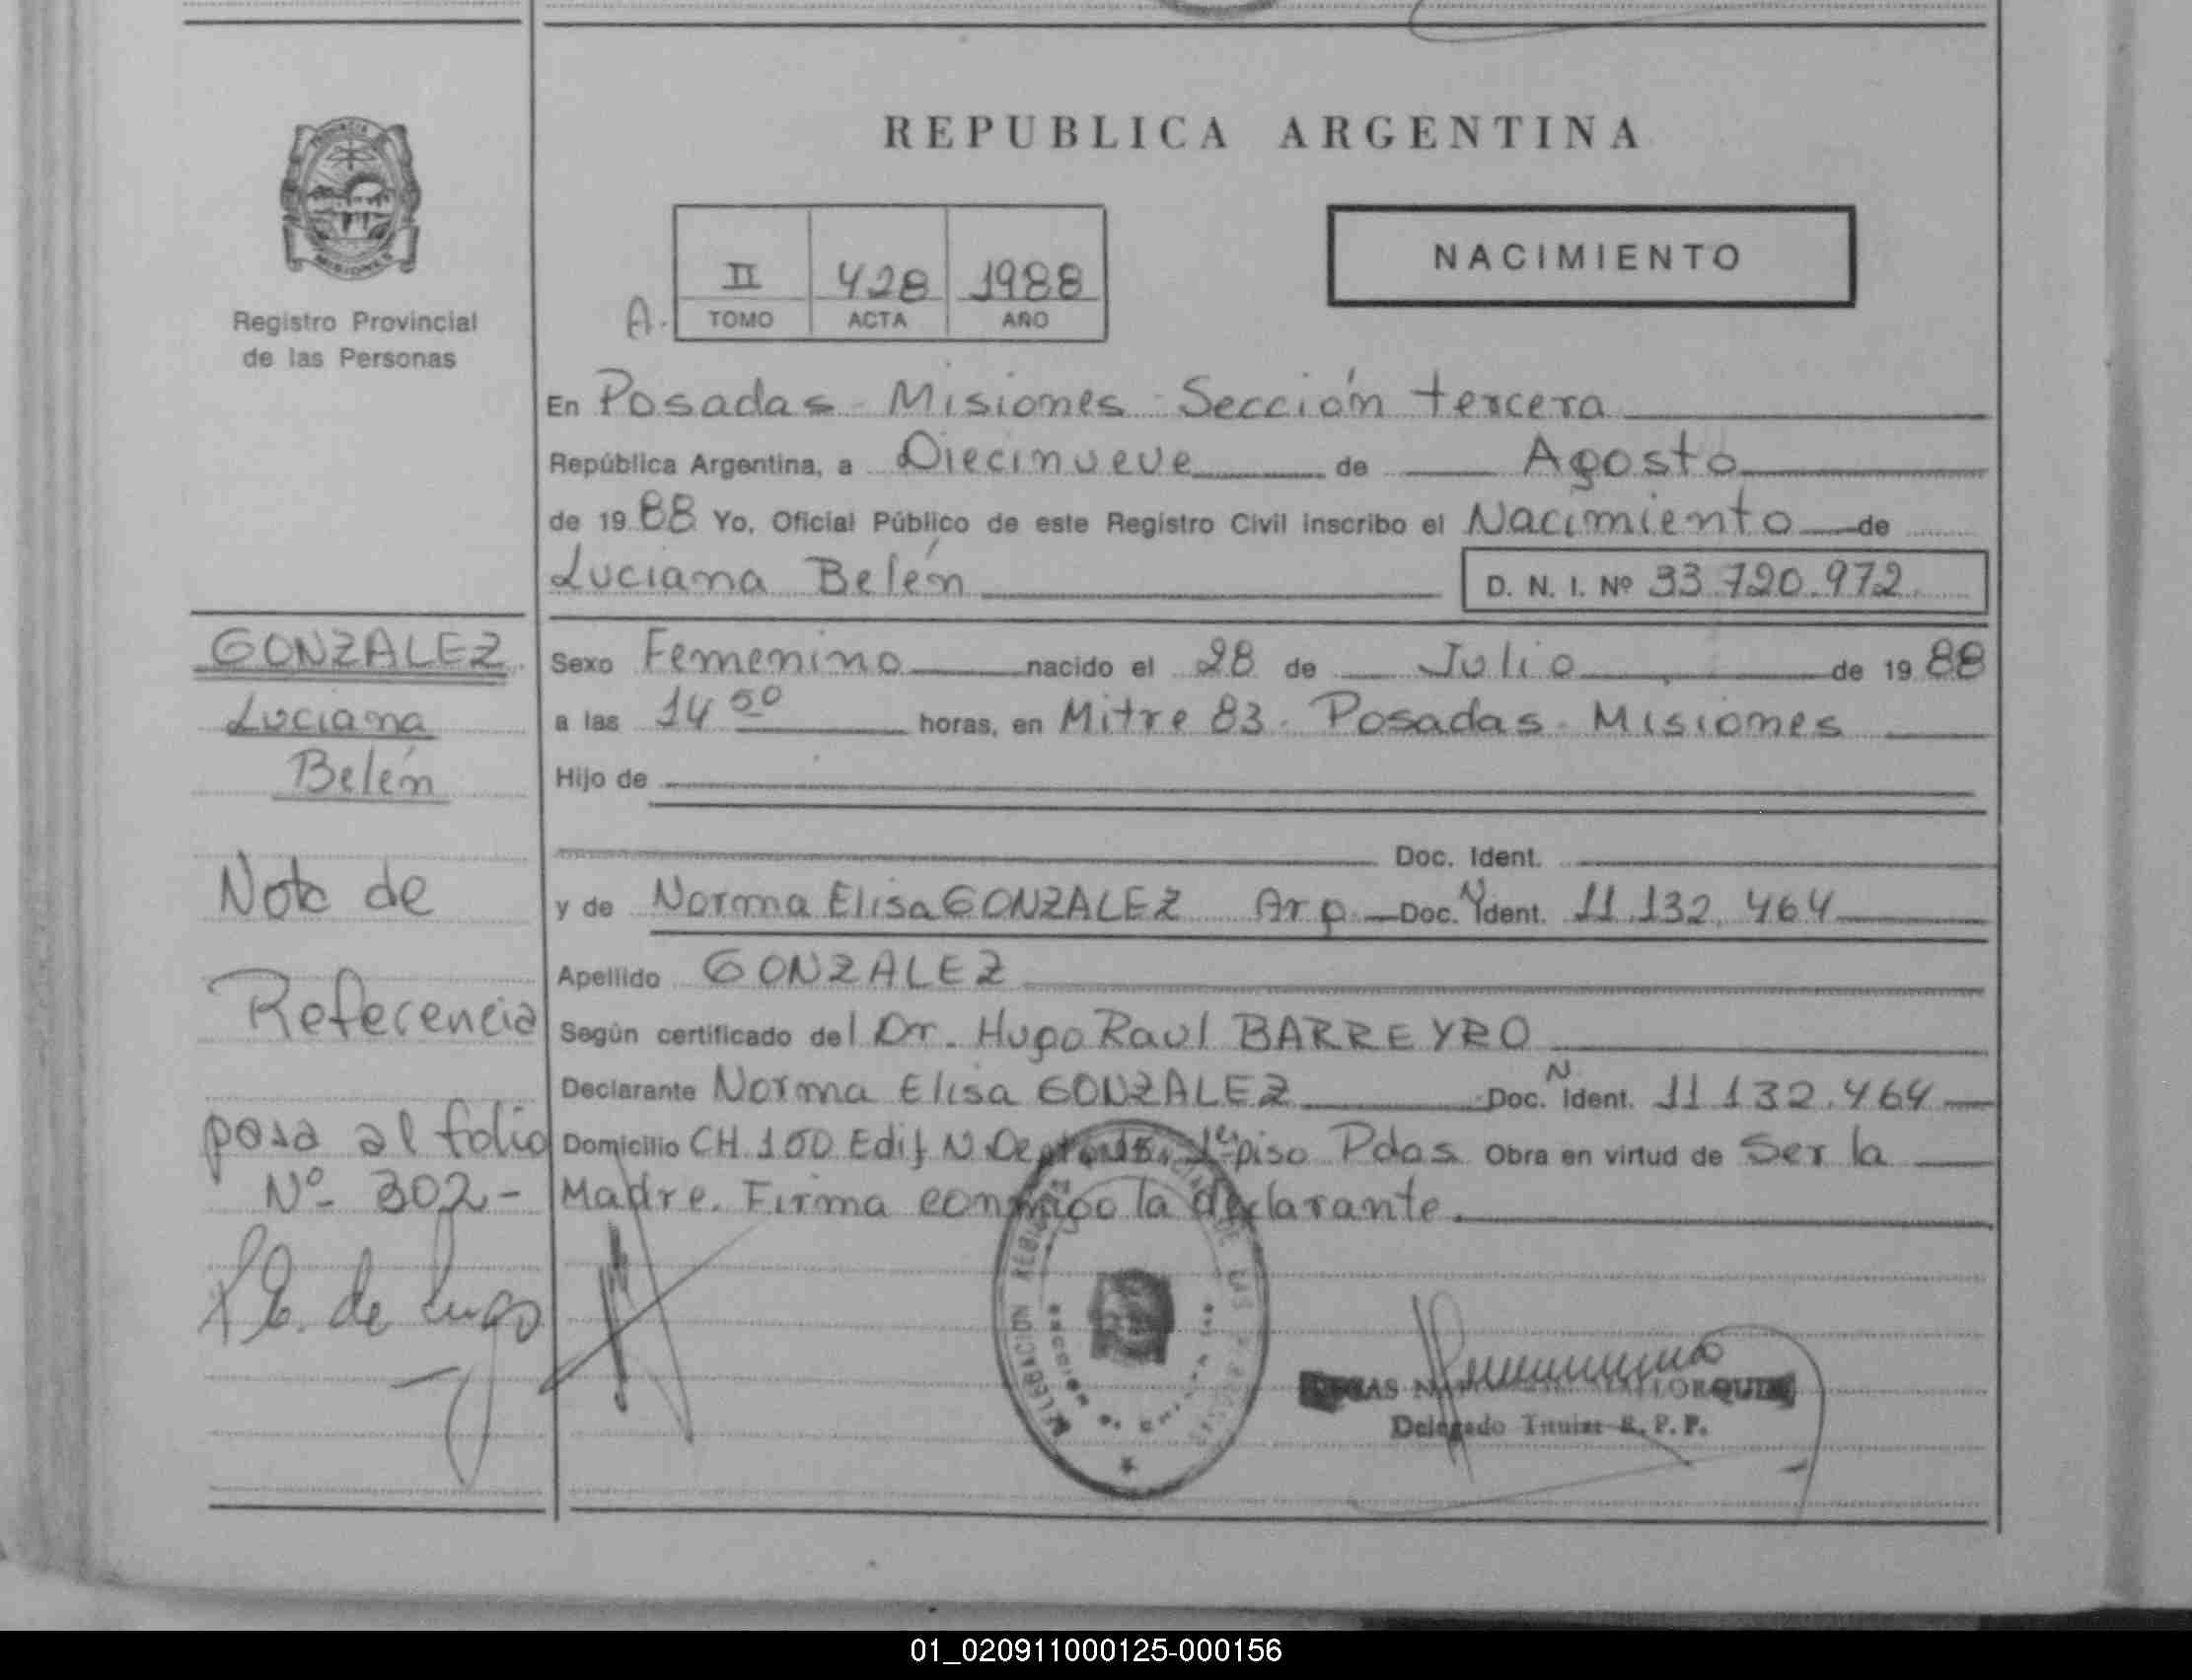 REPUBLICA ARGENTINA
PROVINCIA
MISIONES
Registro Provincial
de las Personas
NACIMIENTO
A. II 428 1988
TOMO ACTA AÑO
En Posadas - Misiones - Sección tercera
República Argentina, a Diecinueve de Agosto
de 1988 Yo, Oficial Público de este Registro Civil inscribo el Nacimiento de
Luciana Belén D. N. I. Nº 33.720.972.
GONZALEZ
Luciana
Belén
Sexo Femenino nacido el 28 de Julio de 1988
a las 14 50 horas, en Mitre 83. Posadas - Misiones
Hijo de
Doc. Ident.
y de Norma Elisa GONZALEZ Arg. Doc. N Ident. 11.132.464
Apellido GONZALEZ
Según certificado del Dr. Hugo Raul BARREYRO
Declarante Norma Elisa GONZALEZ Doc. N Ident. 11.132.464
Domicilio CH 150 Edif N 1er piso Pdas Obra en virtud de Ser la
Madre. Firma conmigo la declarante.
Nota de
Referencia
pasa al folio
Nº 302-
de Lugo
DELEGACION
DE LAS
MALLORQUIN
Delegado Titular R. P. P.
01_020911000125-000156